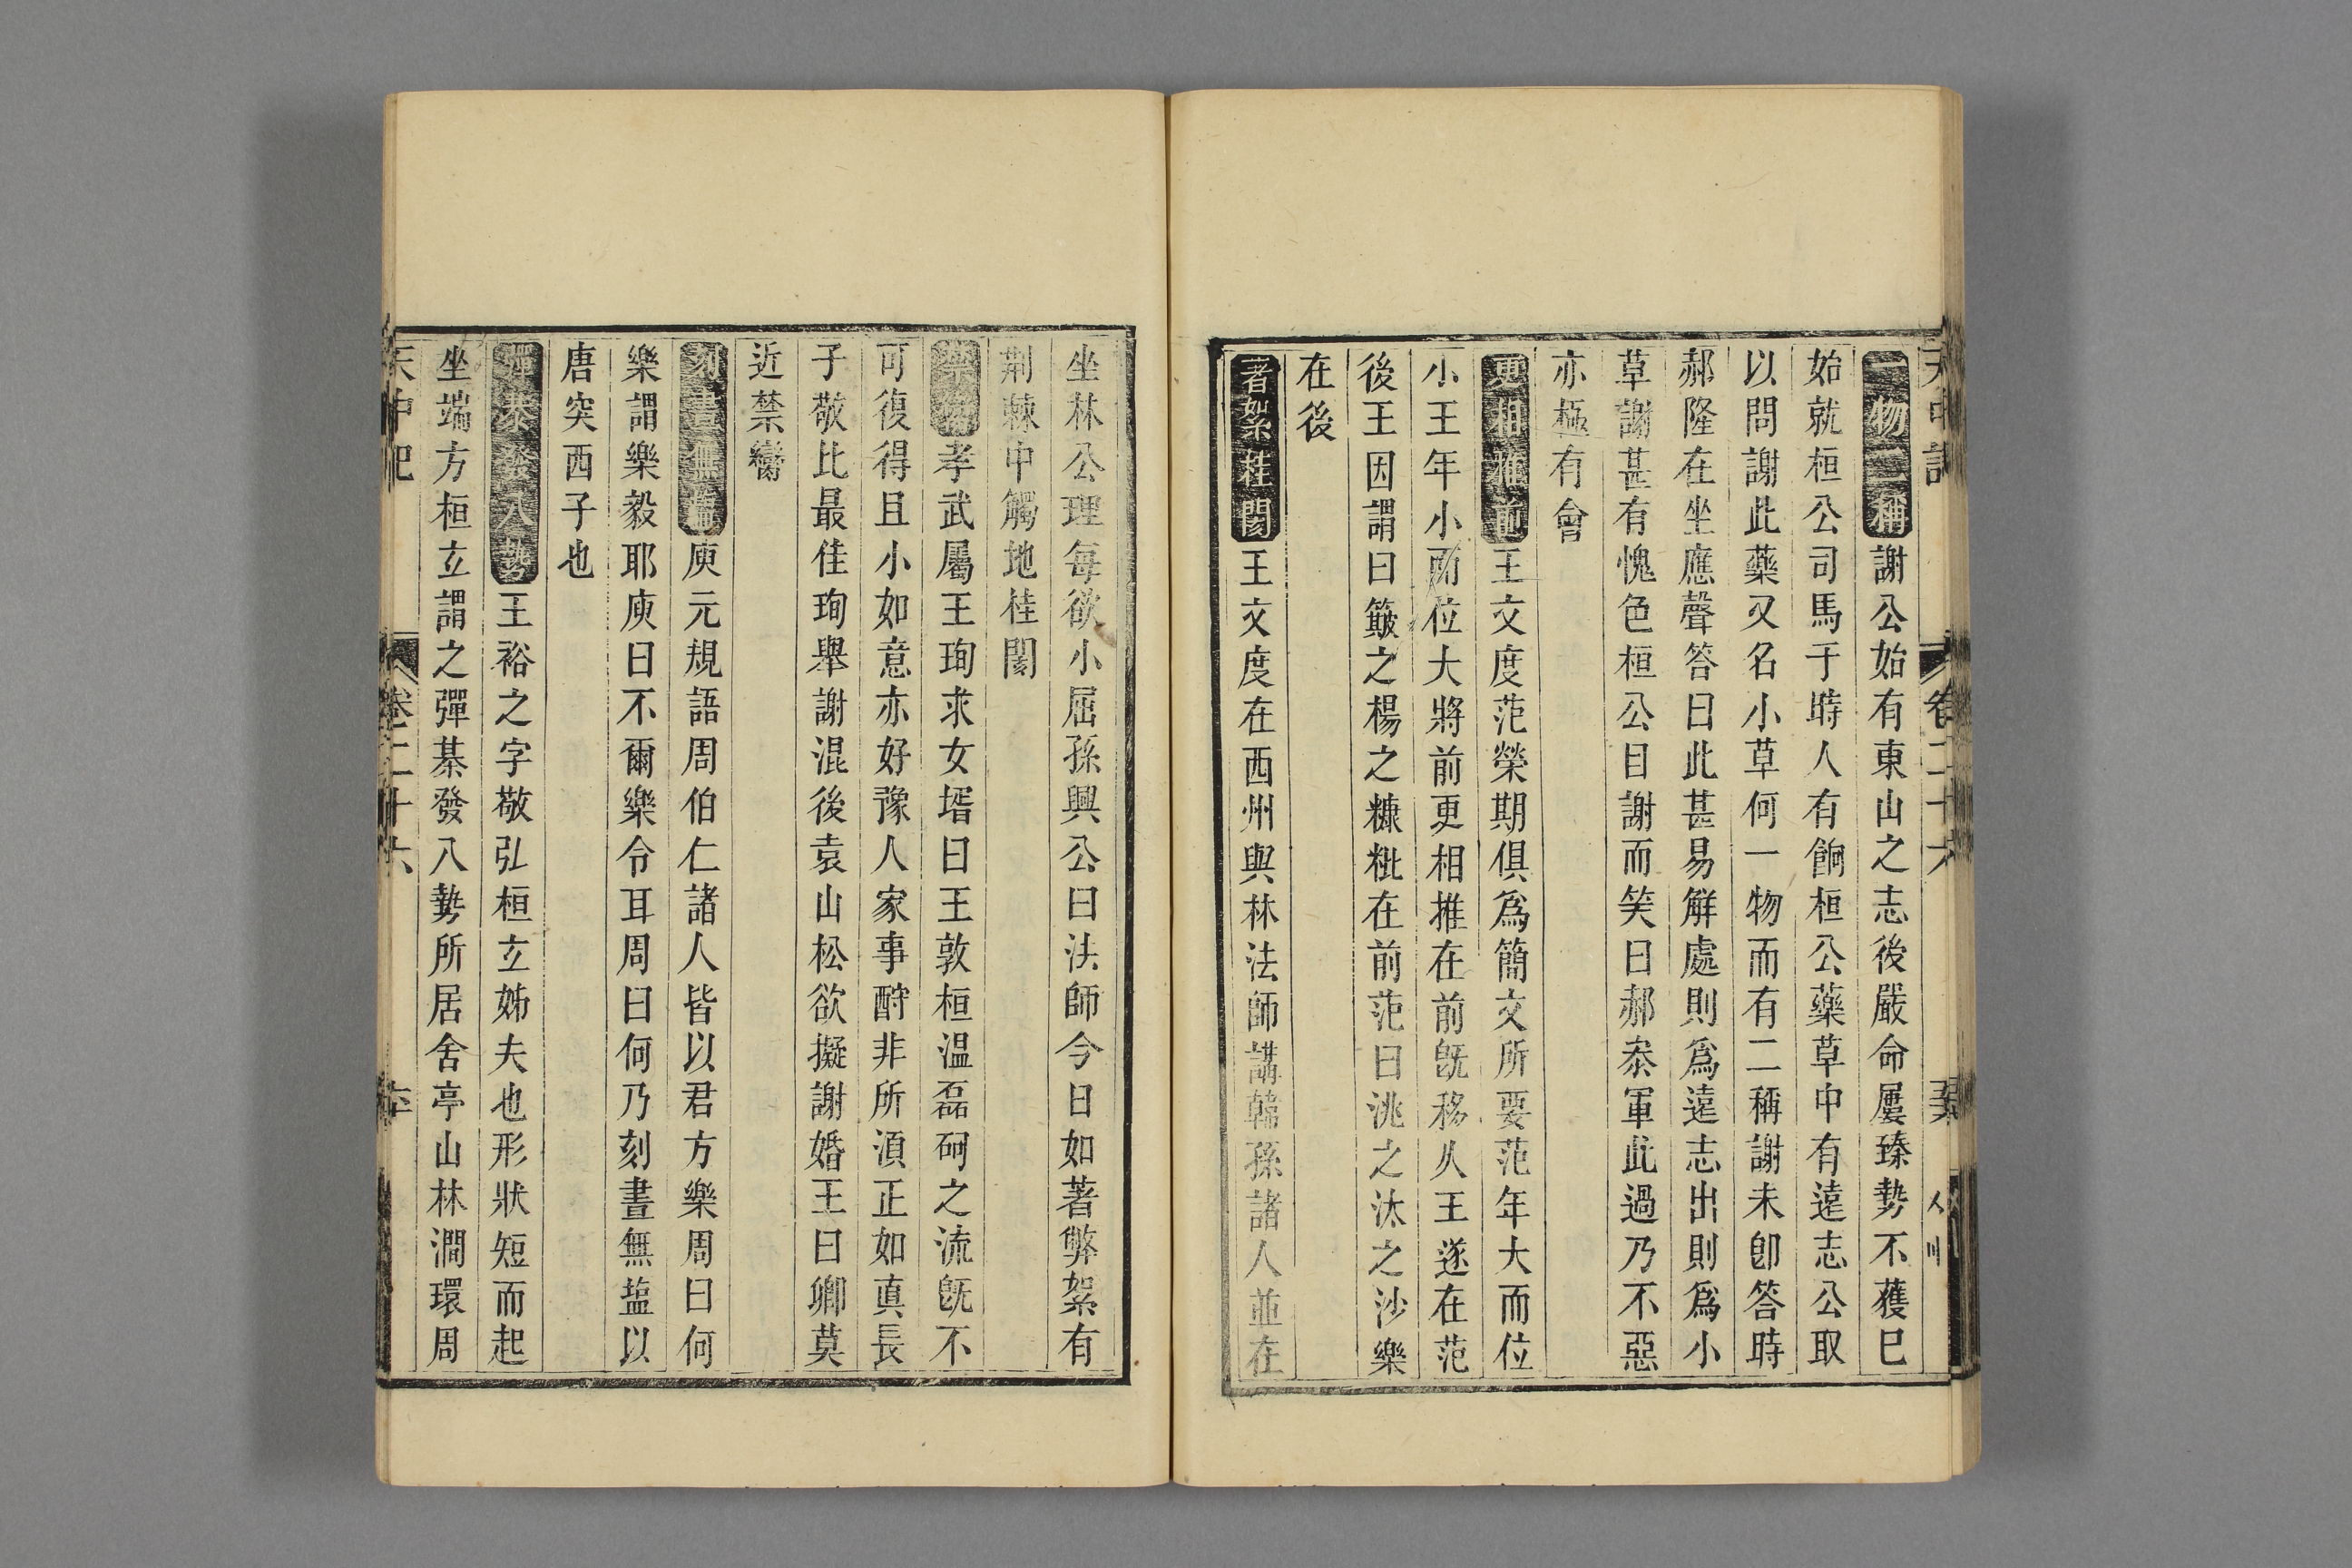 天中記 卷二十六
一物二稱謝公始有東山之志後嚴命屢臻勢不獲巳
始就桓公司馬于時人有餉桓公藥草中有遠志公取
以問謝此藥又名小草何一物而有二稱謝未卽答時
郝隆在坐應聲答曰此甚易解處則爲遠志出則爲小
草謝甚有愧色桓公目謝而笑曰郝叅軍此過乃不惡
亦極有會
更相推前王文度范榮期俱爲簡文所要范年大而位
小王年小而位大將前更相推在前旣移久王遂在范
後王因謂曰簸之楊之糠秕在前范曰洮之汰之沙礫
在後
著絮桂閡王文度在西州與林法師講韓孫諸人並在
坐林公理每欲小屈孫興公曰法師今日如著弊絮有
荆棘中觸地桂閡
禁臠孝武屬王珣求女壻曰王敦桓温磊砢之流旣不
可復得且小如意亦好豫人家事酧非所湏正如真長
子敬比最佳珣舉謝混後袁山松欲擬謝婚王曰卿莫
近禁臠
刻畫無鹽庾元規語周伯仁諸人皆以君方樂周曰何
樂謂樂毅耶庾曰不爾樂令耳周曰何乃刻晝無塩以
唐突西子也
彈棊發八勢王裕之字敬弘桓玄姊夫也形狀短而起
坐端方桓玄謂之彈棊發八勢所居舍亭山林澗環周
天中記 卷二十六